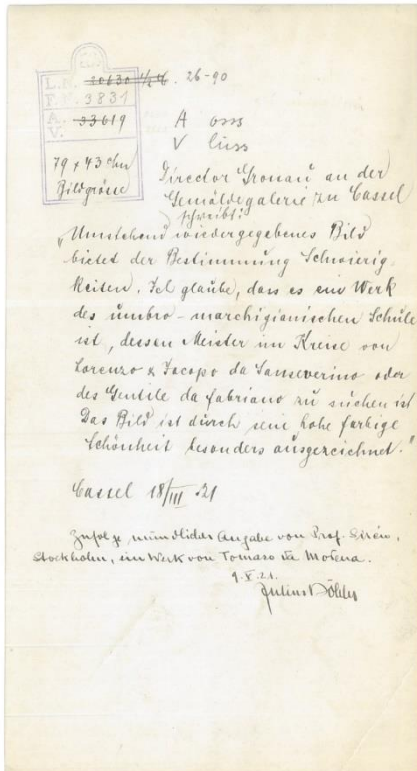 L.N. 20630 1/2 . 26-90
F.N. 3831
A. 33619
V.
A oss
V lüss
79 x 43 chn
Bildgrösse
Director Gronau an der
Gemäldegalerie zu Cassel
schreibt:
„Umstehend wiedergegebenes Bild
bietet der Bestimmung Schwierig-
keiten. Ich glaube, dass es ein Werk
des umbro-marchigianischen Schule
ist, dessen Meister im Kreise von
Lorenzo & Jacopo da Sanseverino oder
des Gentile da Fabriano zu suchen ist
Das Bild ist durch seine hohe farbige
Schönheit besonders ausgezeichnet."
Cassel 18/III 21
Zufolge mündlicher Angabe von Prof. Sirén,
Stockholm, ein Werk von Tomaso da Modena.
9.V.21.
Julius Böhler